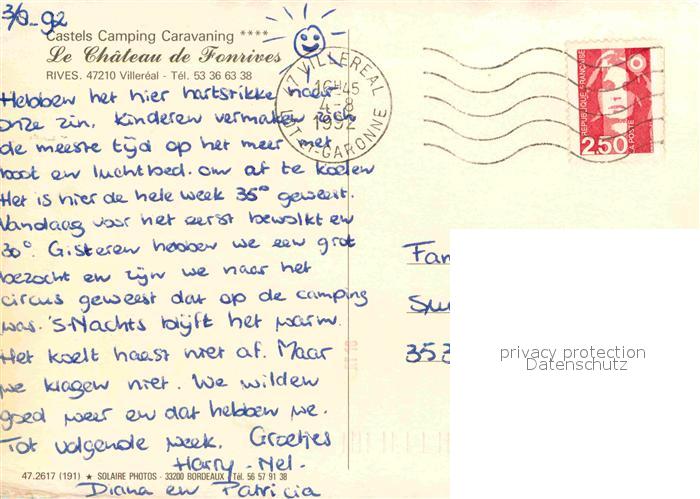 3/8-92
Castels Camping Caravaning ****
Le Château de Fonrives
RIVES. 47210 Villeréal - Tél. 53 36 63 38
Hebben het hier hartstikke naar
onze zin. Kinderen vermaken zich
de meeste tijd op het meer met
boot en luchtbed. om af te koelen
Het is hier de hele week 35° geweest.
Vandaag voor het eerst bewolkt en
30°. Gisteren hebben we een grot
bezocht en zijn we naar het
circus geweest dat op de camping
was. 'S-Nachts blijft het warm.
Het koelt haast niet af. Maar
we klagen niet. We wilden
goed weer en dat hebben we.
Tot volgende week. Groetjes
Harry - Nel -
Diana en Patricia
47.2617 (191) ★ SOLAIRE PHOTOS - 33200 BORDEAUX - Tél. 56 57 91 38
47 VILLEREAL
16H45
4-8
1992
LOT-ET-GARONNE
REPUBLIQUE FRANÇAISE
2,50
LA POSTE
Fam
353
privacy protection
Datenschutz